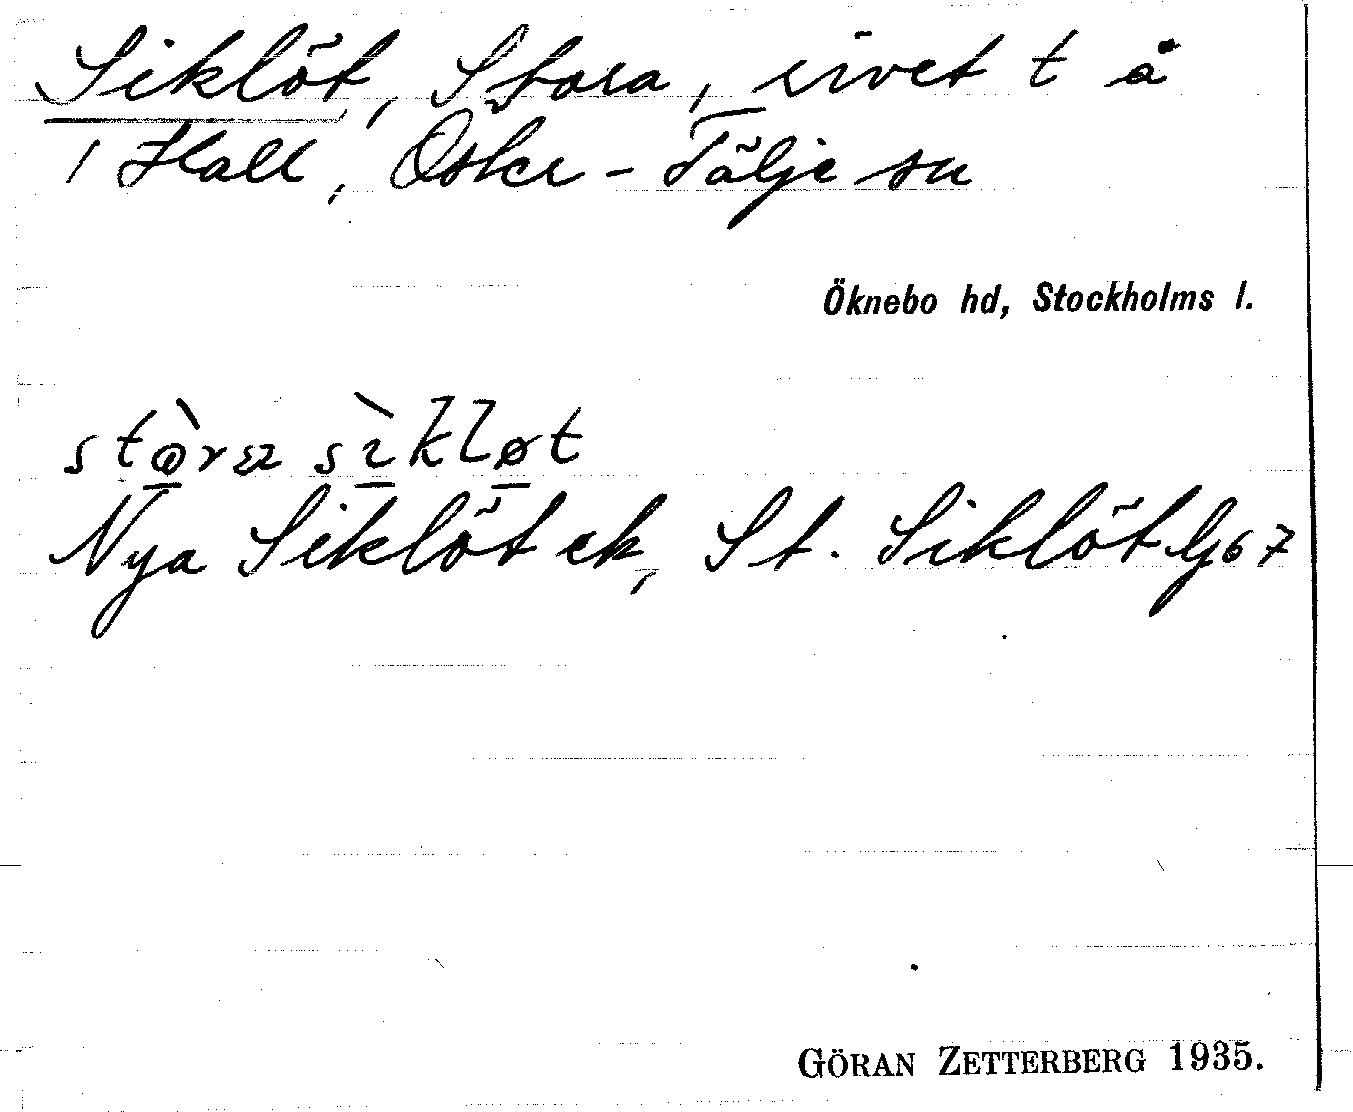 Siklöt, Stora, rivet t å
i Hall, Öster-Tälje sn
Öknebo hd, Stockholms l.
Nya Siklöt ek, St. Siklöt G67
GÖRAN ZETTERBERG 1935.